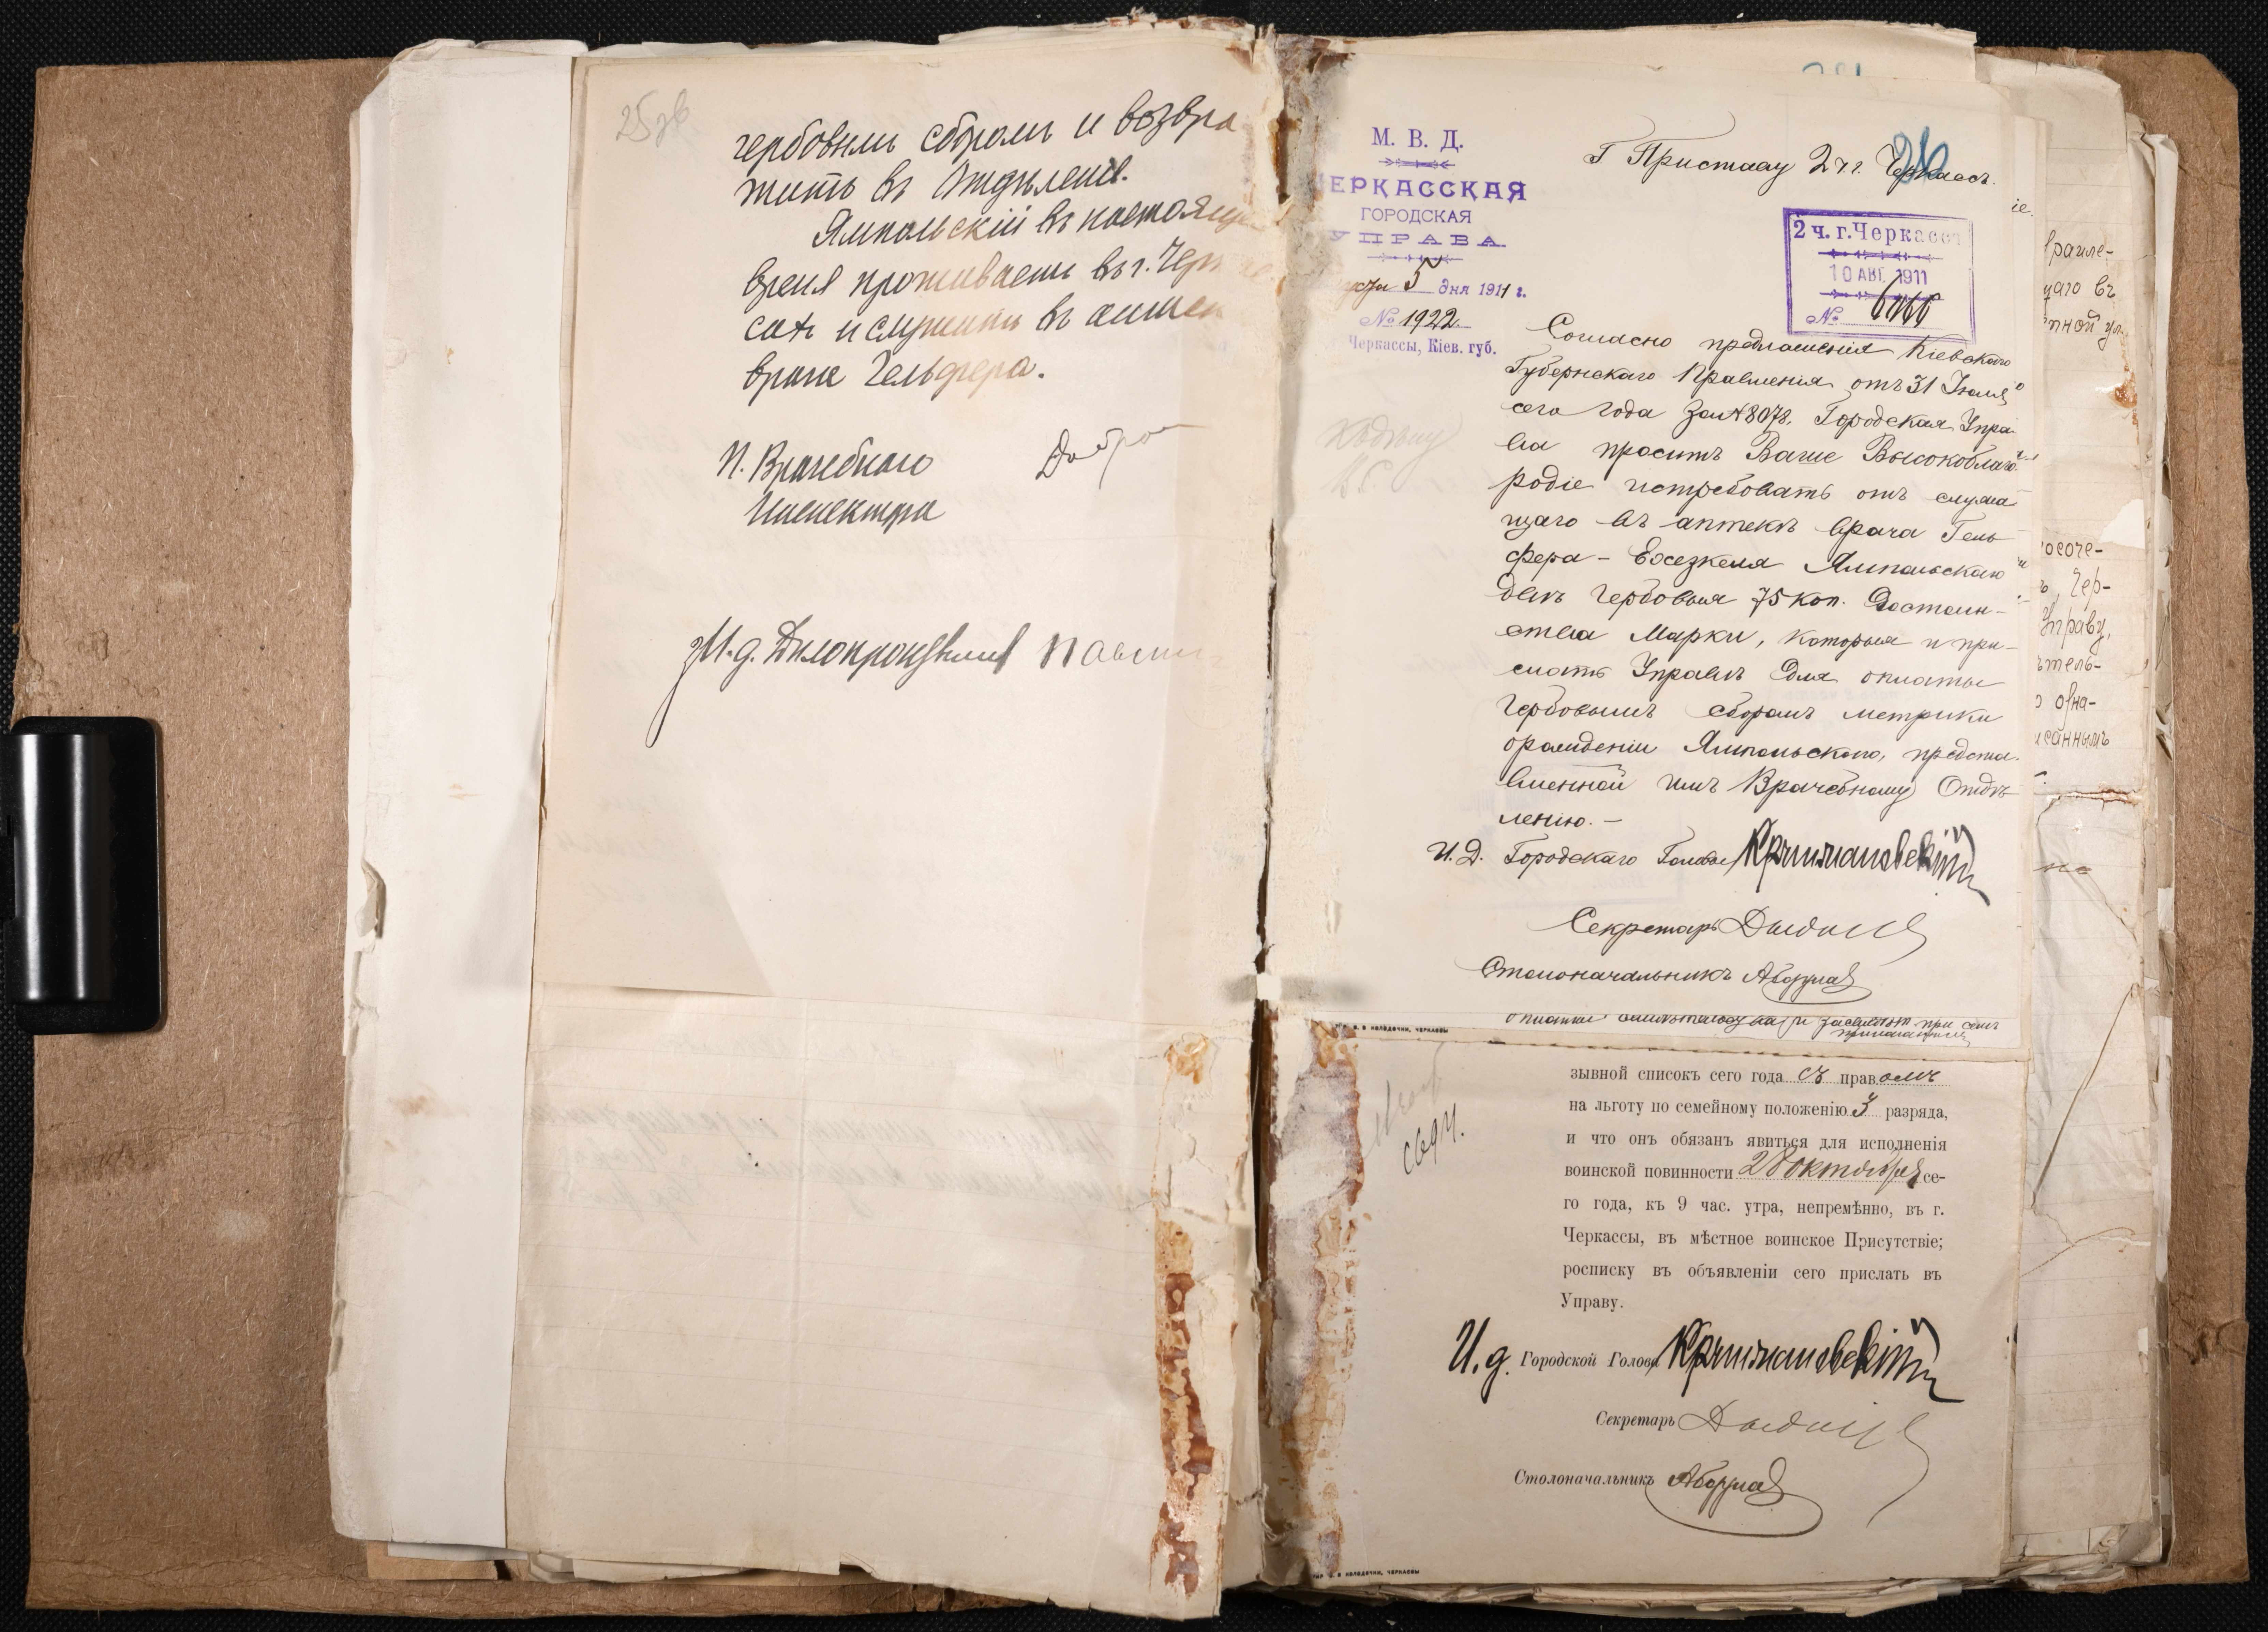 25 зв
гербовымъ сборомъ и возвра
тить въ Отдѣленіе.
Ямпольскій въ настояще
время проживаетъ въ г. Черк
сахъ и служитъ въ аптек
врача Гельфера.
И. Врачебнаго
Инспектора
И. д. Дѣлопроизводителя
М. В. Д.
ЕРКАССКАЯ
ГОРОДСКАЯ
УПРАВА
5 дня 1911 г.
№ 1922
Черкассы, Кіев. губ.
Г Приставу 2 ч. г. Черкассъ.
26
2 ч. г. Черкассъ
10 АВГ. 1911
№
Согласно предложенія Кіевскаго
Губернскаго Правленія отъ 31 Іюля
сего года за № 8078, Городская Упра
ва проситъ Ваше Высокоблаго
родіе истребовать отъ служа
щаго въ аптекѣ врача Гель
фера - Іосезкеля Ямпольскаго
двѣ гербовыя 75 коп. достоин-
ства марки, которыя и при-
слать Управѣ для оплаты
гербовымъ сборомъ метрики
о рожденіи Ямпольскаго, предста
вленной имъ Врачебному Отдѣ
ленію. -
И. Д. Городскаго Головы Крижановскій
Секретарь
Столоначальникъ
при семъ
ЧЕРКАССЫ
зывной списокъ сего года съ правомъ
на льготу по семейному положенію 3 разряда,
и что онъ обязанъ явиться для исполненія
воинской повинности 28 октября се-
го года, къ 9 час. утра, непремѣнно, въ г.
Черкассы, въ мѣстное воинское Присутствіе;
росписку въ объявленіи сего прислать въ
Управу.
И. д. Городской Голова Крижановскій
Секретарь
Столоначальникъ
ЧЕРКАССЫ
іе.
щаго въ
Чер-
Управу,